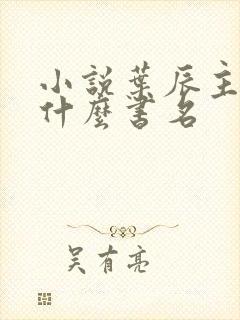 小説葉辰主
什麼書名
吴有亮